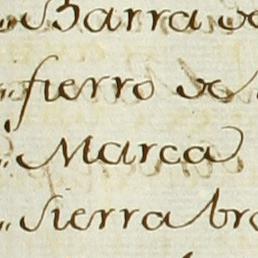 Barra de
fierro de
Marca
sierra bra